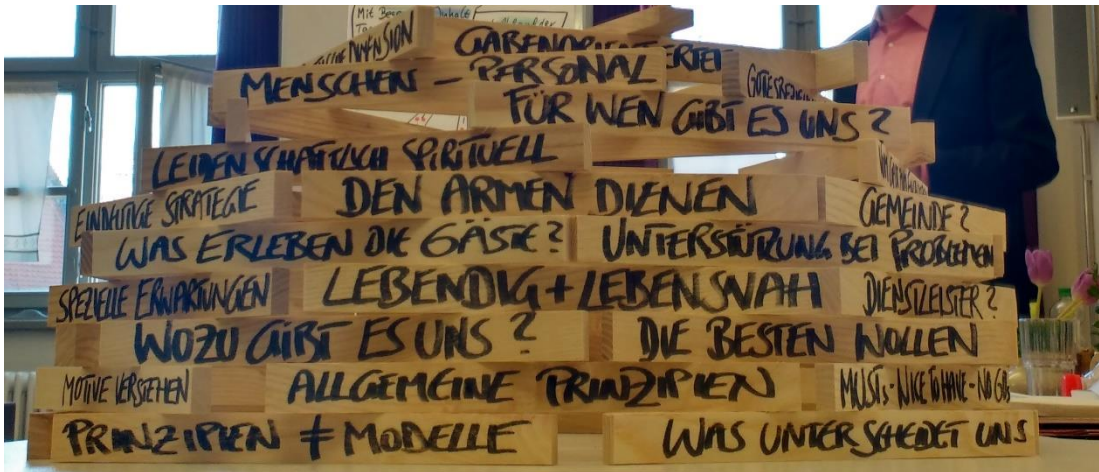 Mit
DIMENSION
GABENORIENTIERTEN
MENSCHEN - PERSONAL
FÜR WEN GIBT ES UNS?
LEIDENSCHAFTLICH SPIRITUELL
EINDEUTIGE STRATEGIE DEN ARMEN DIENEN GEMEINDE?
WAS ERLEBEN DIE GÄSTE? UNTERSTÜTZUNG BEI PROBLEMEN
SPEZIELLE ERWARTUNGEN LEBENDIG + LEBENSNAH DIENSTLEISTER?
WOZU GIBT ES UNS? DIE BESTEN WOLLEN
MOTIVE VERSTEHEN ALLGEMEINE PRINZIPIEN MUSTS - NICE TO HAVE - NO GOS
PRINZIPIEN ≠ MODELLE WAS UNTERSCHEIDET UNS